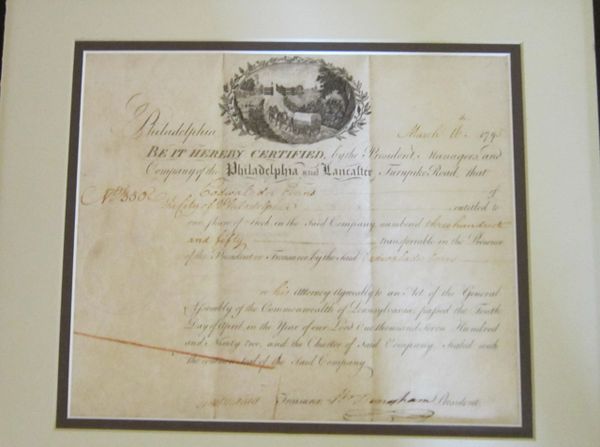 Philadelphia March 16th 179
BE IT HEREBY CERTIFIED, by the President Managers and
Company of the Philadelphia and Lancaster Turnpike Road, that
No. 350 Cadwalader Evans of
the City of Philadelphia entitled to
one share of Stock in the said Company numbered three hundred
and fifty transferable in the Presence
of the President or Treasurer by the said Cadwalader Evans
or his Attorney Agreeably to an Act of the General
Assembly of the Commonwealth of Pennsylvania, passed the Fourth
Day of April, in the Year of our Lord One thousand Seven Hundred
and Ninety two, and the Charter of said Company. Sealed with
the common Seal of the said Company
Treasurer Wm Bingham President